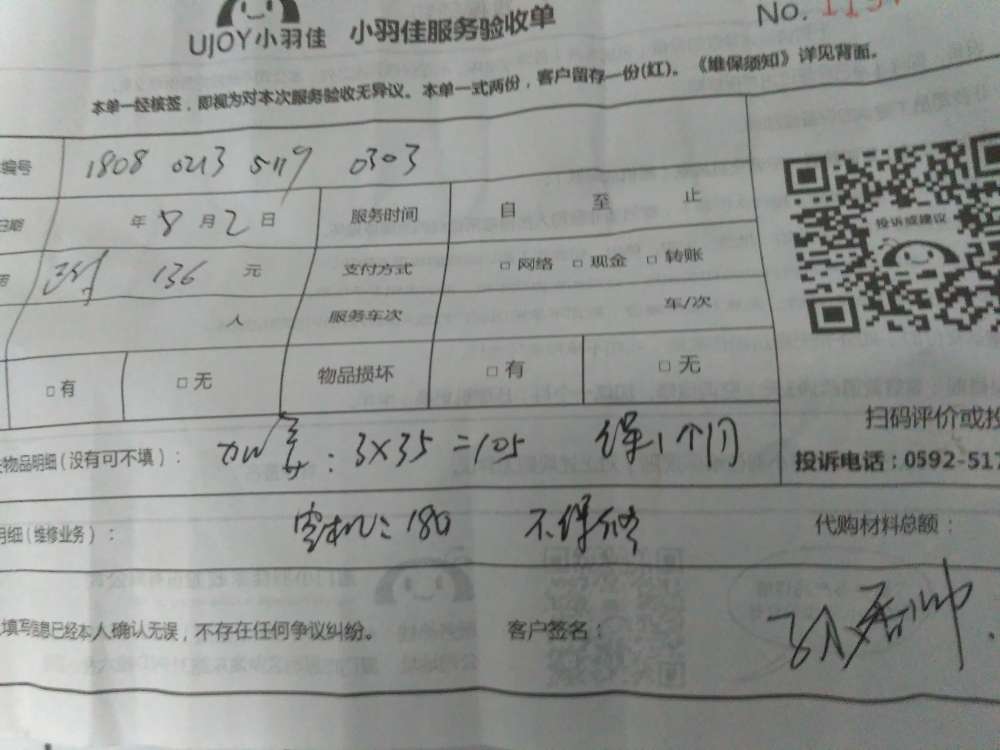 UJOY小羽佳 小羽佳服务验收单 No. 115
本单一经核签，即视为对本次服务验收无异议。本单一式两份，客户留存一份(红)。《维保须知》详见背面。
编号 1808 0213 5119 0303
日期 年 8 月 2 日 服务时间 自 至 止
136 元 支付方式 □ 网络 □ 现金 □ 转账
人 服务车次 车/次
□ 有 □ 无 物品损坏 □ 有 □ 无
投诉或建议
扫码评价或投
物品明细(没有可不填)： 加氟：3×35=105 保1个月
投诉电话：0592-517
明细(维修业务)： 移机：180 不保修 代购材料总额：
填写信息已经本人确认无误，不存在任何争议纠纷。 客户签名：